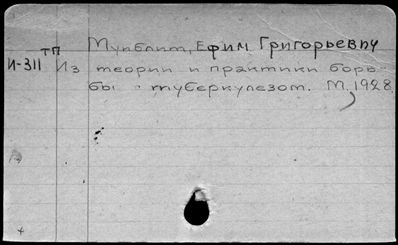 Мунблит, Ефим Григорьевич
тп
И-311 Из теории и практики борь-
бы с туберкулезом. М, 1928